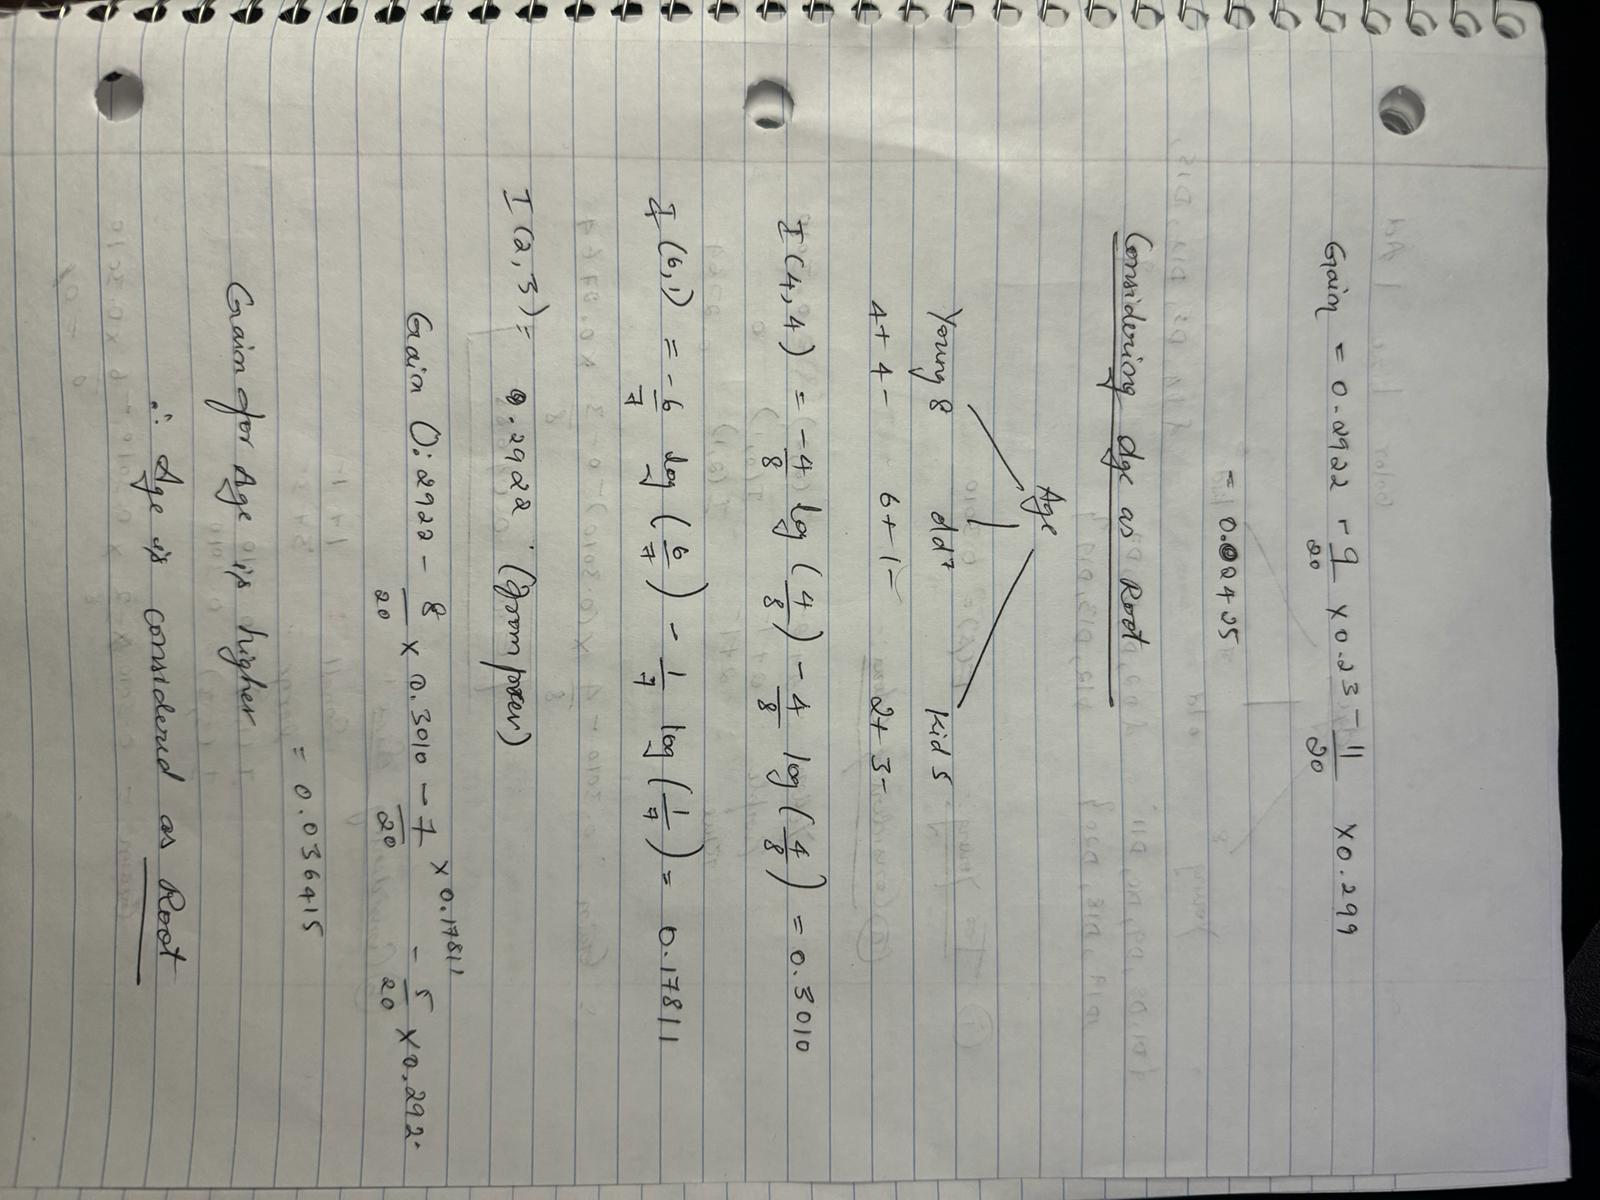 Gain = 0.2922 - 9/20 x 0.23 - 11/20 x 0.299
= 0.02425
Considering Age as Root
Age
Young 8 old 7 Kid 5
4+ 4- 6+ 1- 2+ 3-
I(4,4) = -4/8 log (4/8) - 4/8 log (4/8) = 0.3010
I(6,1) = -6/7 log (6/7) - 1/7 log (1/7) = 0.17811
I(2,3) = 0.2922 (from prev)
Gain 0.2922 - 8/20 x 0.3010 - 7/20 x 0.17811 - 5/20 x 0.292
= 0.036415
Gain for Age is higher
∴ Age is considered as Root